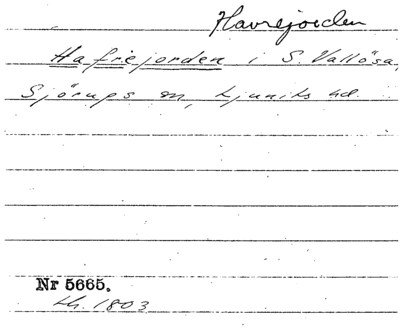 Havrejorden
Hafrejorden i S. Vallösa,
Sjörups sn, Ljunits hd.
Nr 5665.
Lh. 1803